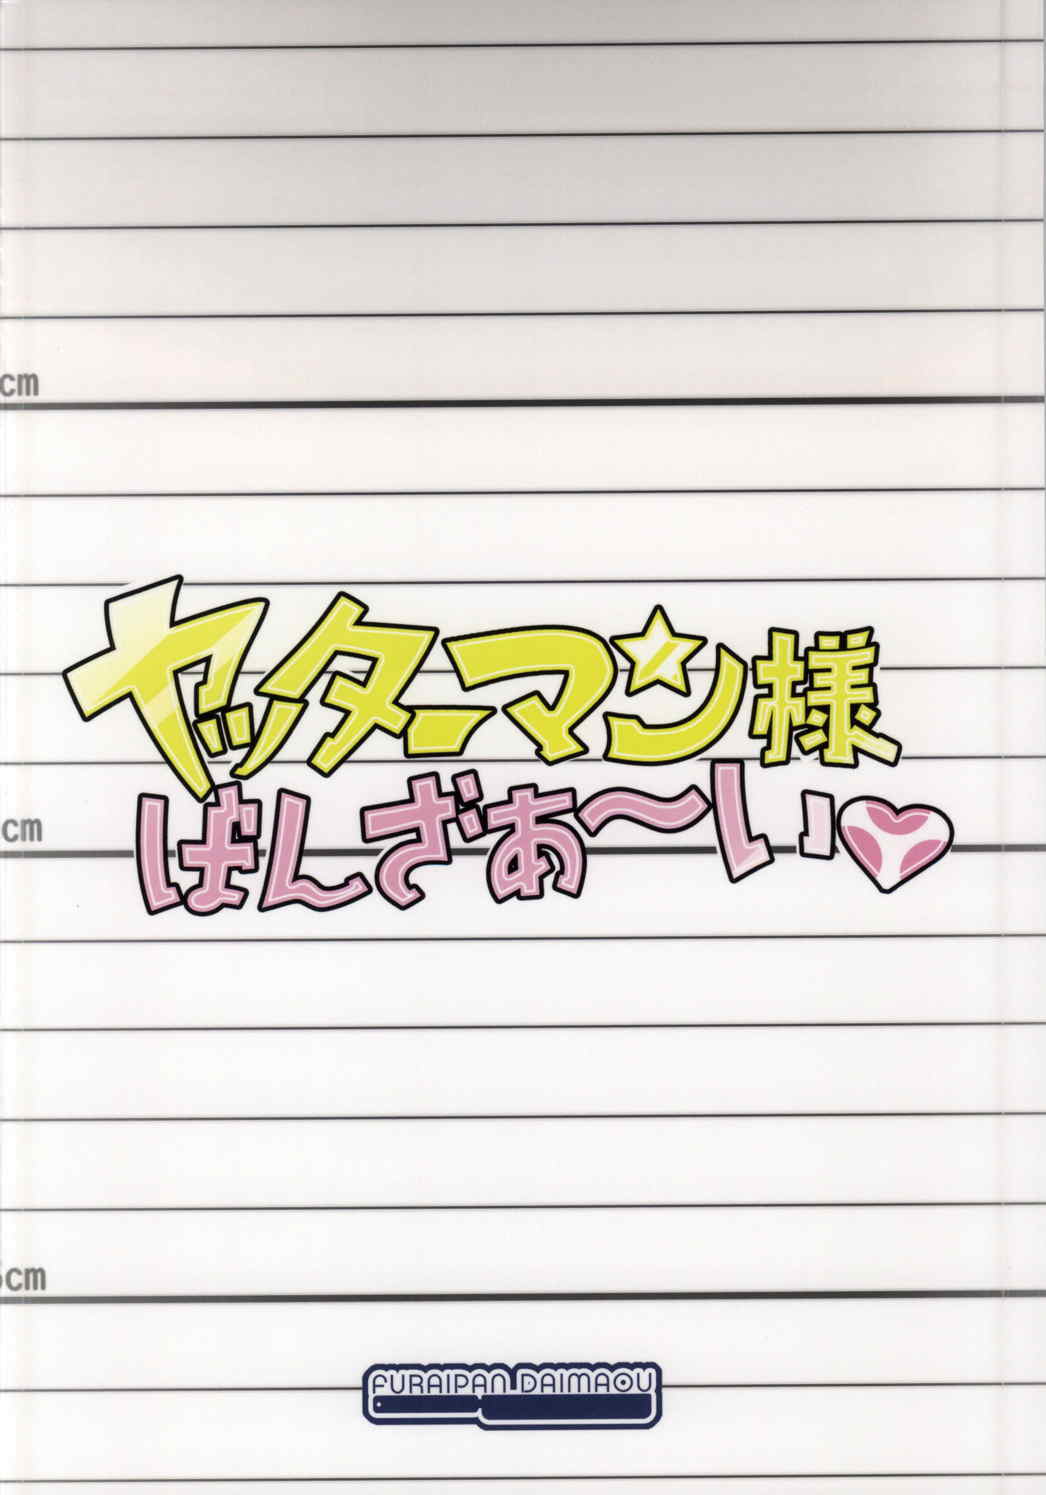 cm
ヤッターマン様
cm
ばんざぁ〜い♥
5cm
FURAIPAN DAIMAOU